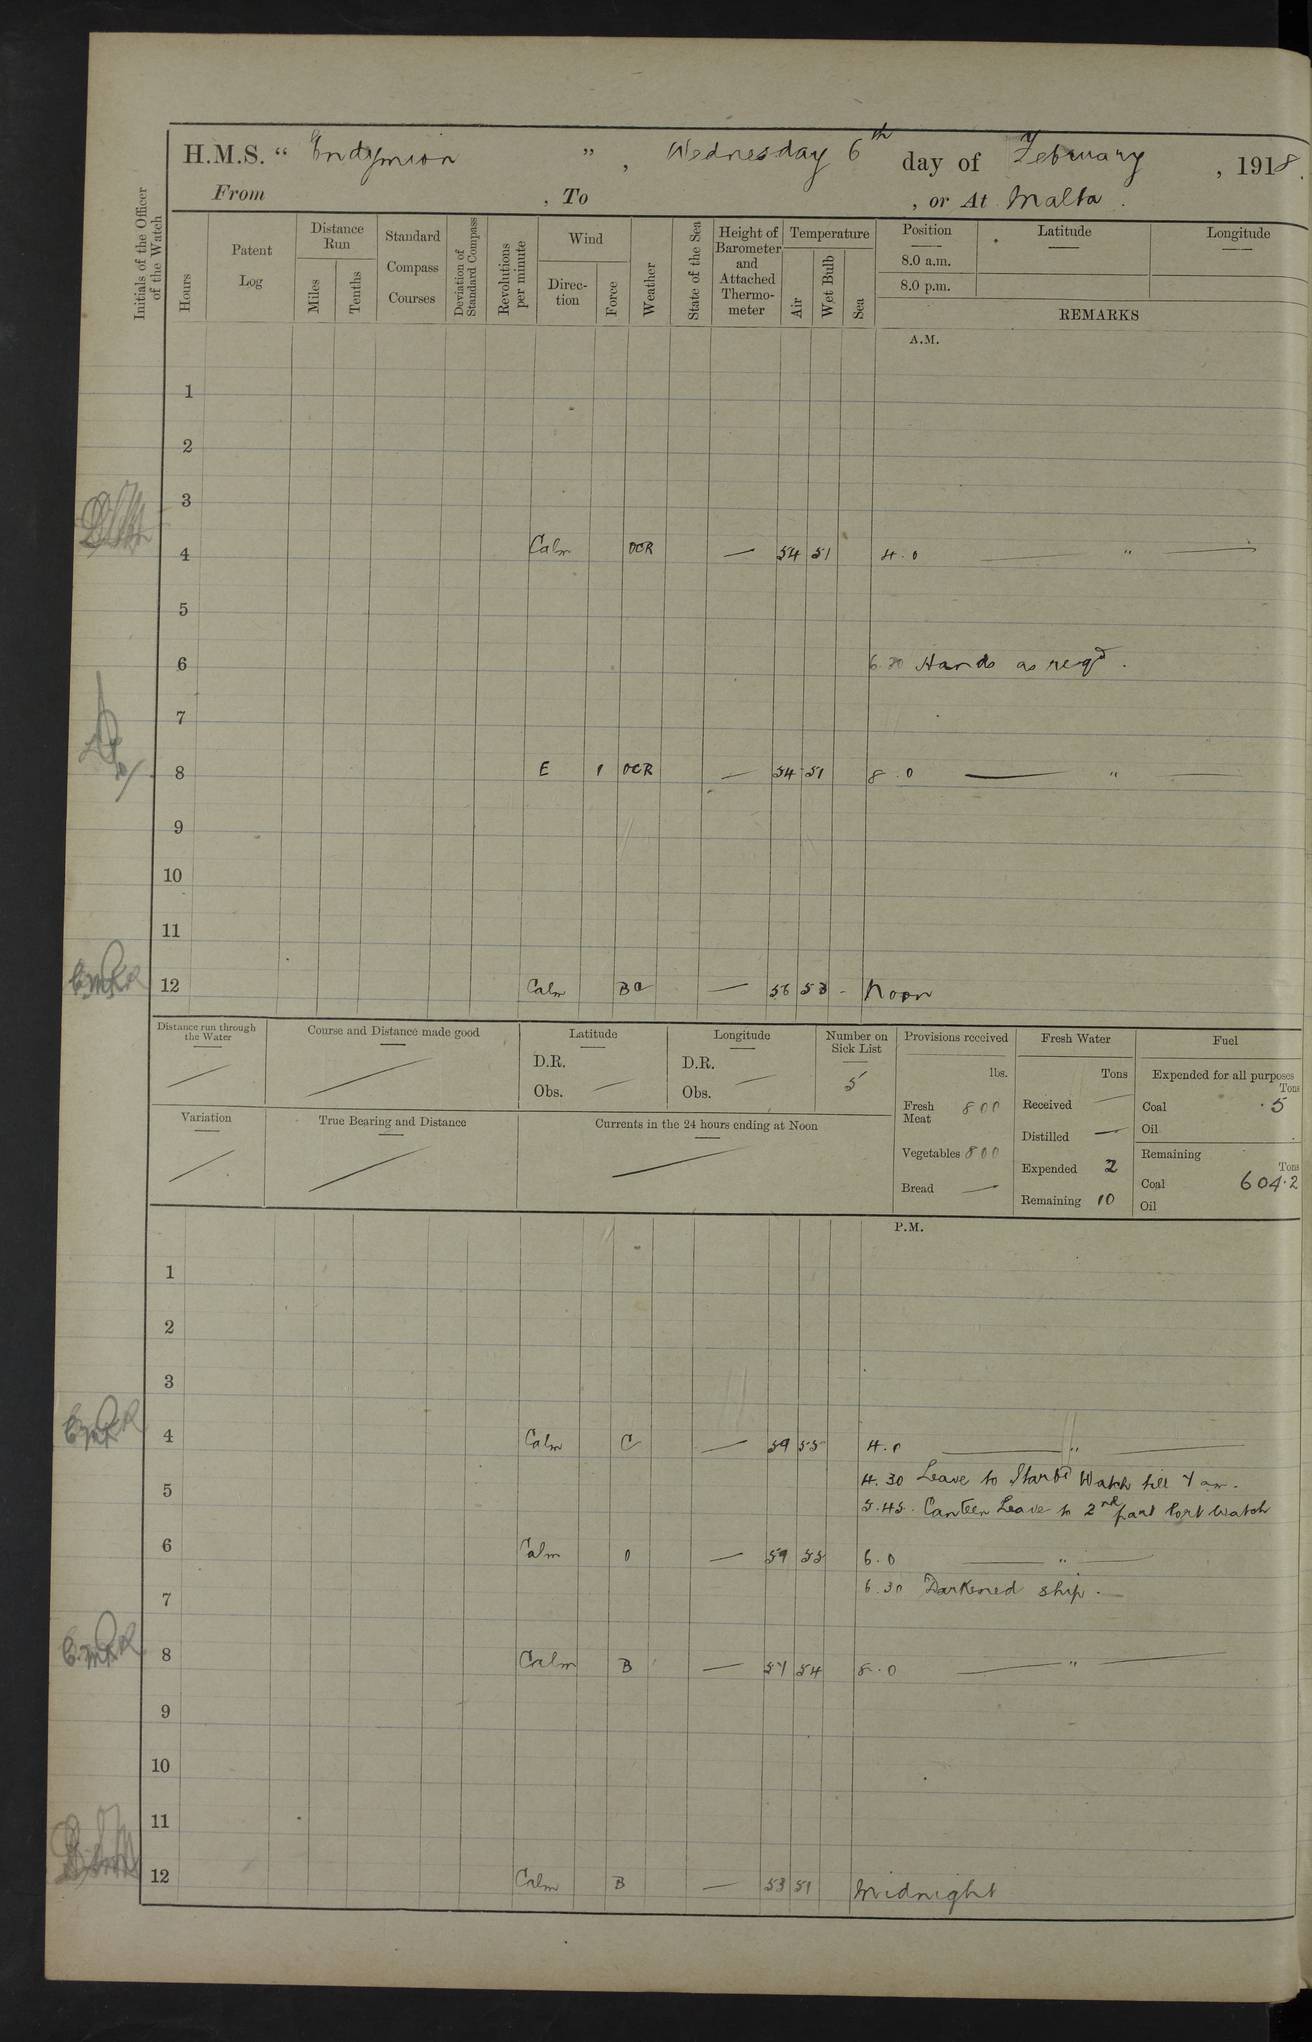 H.M.S. “ Endymion ” , Wednesday 6th day of February , 1918.
From , To , or At Malta .
Initials of the Officer of the Watch
Hours
Patent Log
Distance Run
Miles
Tenths
Standard Compass Courses
Deviation of Standard Compass
Revolutions per minute
Wind
Direc-tion
Force
Weather
State of the Sea
Height of Barometer and Attached Thermo-meter
Temperature
Air
Wet Bulb
Sea
Position
8.0 a.m.
8.0 p.m.
Latitude
Longitude
REMARKS
A.M.
1
2
3
4 Calm OCR — 54 51 4.0 — " —
5
6 6.30 Hands as reqd.
7
8 E 1 OCR — 54 51 8.0 — " —
9
10
11
12 Calm BC — 56 53 - Noon
Distance run through the Water
Course and Distance made good
Latitude
D.R.
Obs. —
Longitude
D.R.
Obs. —
Number on Sick List
5
Variation
True Bearing and Distance
Currents in the 24 hours ending at Noon
Provisions received
lbs.
Fresh Meat 800
Vegetables 800
Bread —
Fresh Water
Tons
Received —
Distilled —
Expended 2
Remaining 10
Fuel
Expended for all purposes
Tons
Coal .5
Oil
Remaining
Tons
Coal 604.2
Oil
P.M.
1
2
3
4 Calm C — 59 55 4.0 — " —
4.30 Leave to Starbd Watch till 7 am.
5
5.45. Canteen Leave to 2nd part Port Watch
6 Calm O — 59 55 6.0 — " —
6.30 Darkened ship. —
7
8 Calm B — 57 54 8.0 — " —
9
10
11
12 Calm B — 53 51 Midnight